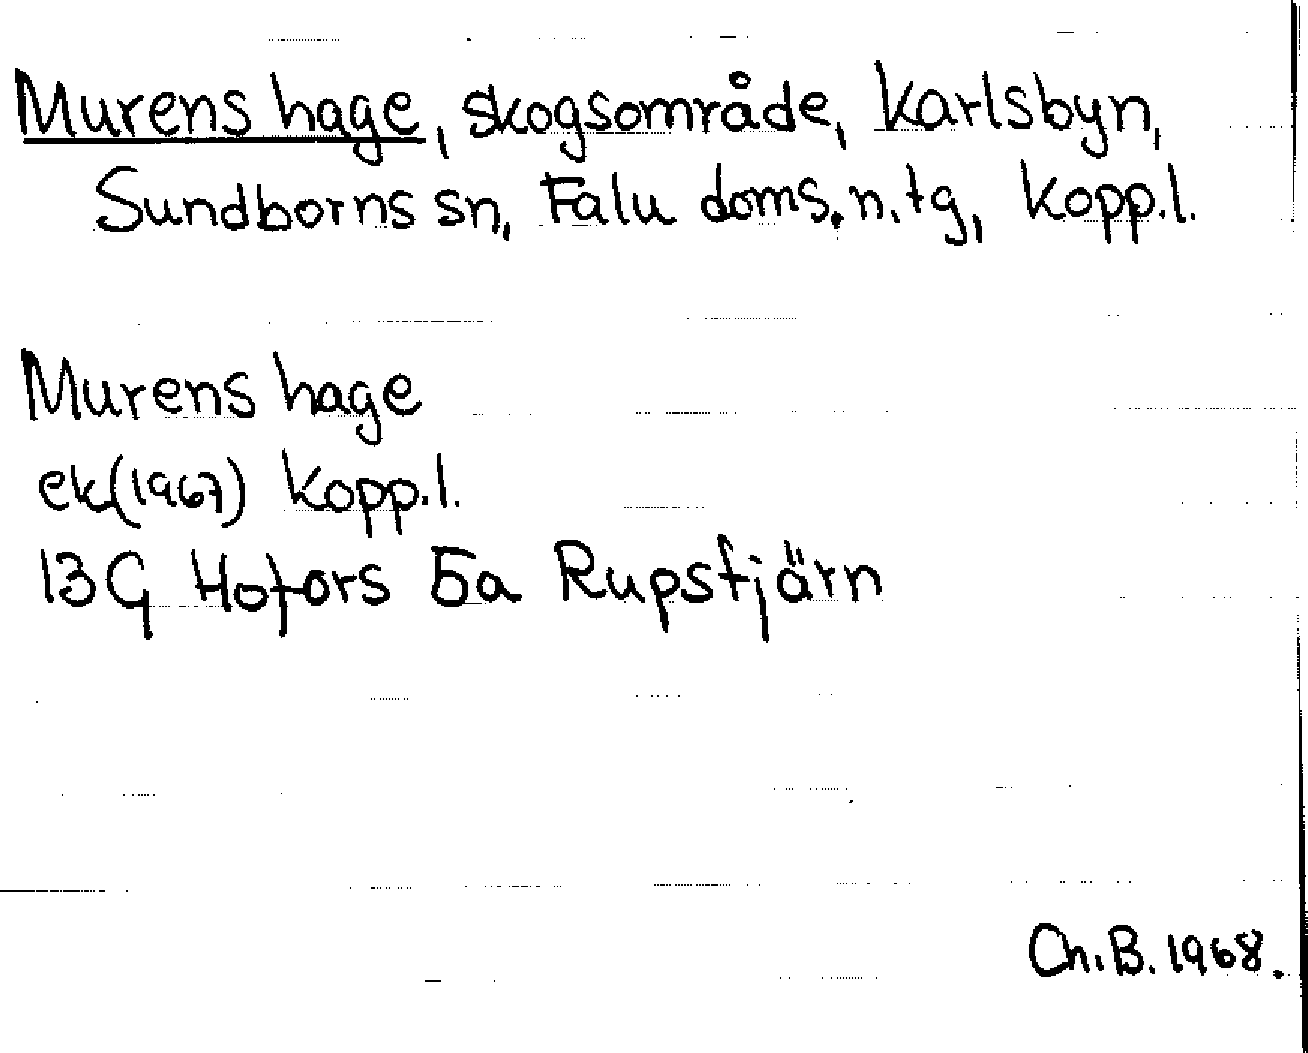 Murens hage, skogsområde, Karlsbyn,
Sundborns sn, Falu doms. n. tg, Kopp.l.
Murens hage
ek(1967) Kopp.l.
13G Hofors 5a Rupstjärn
Ch.B. 1968.